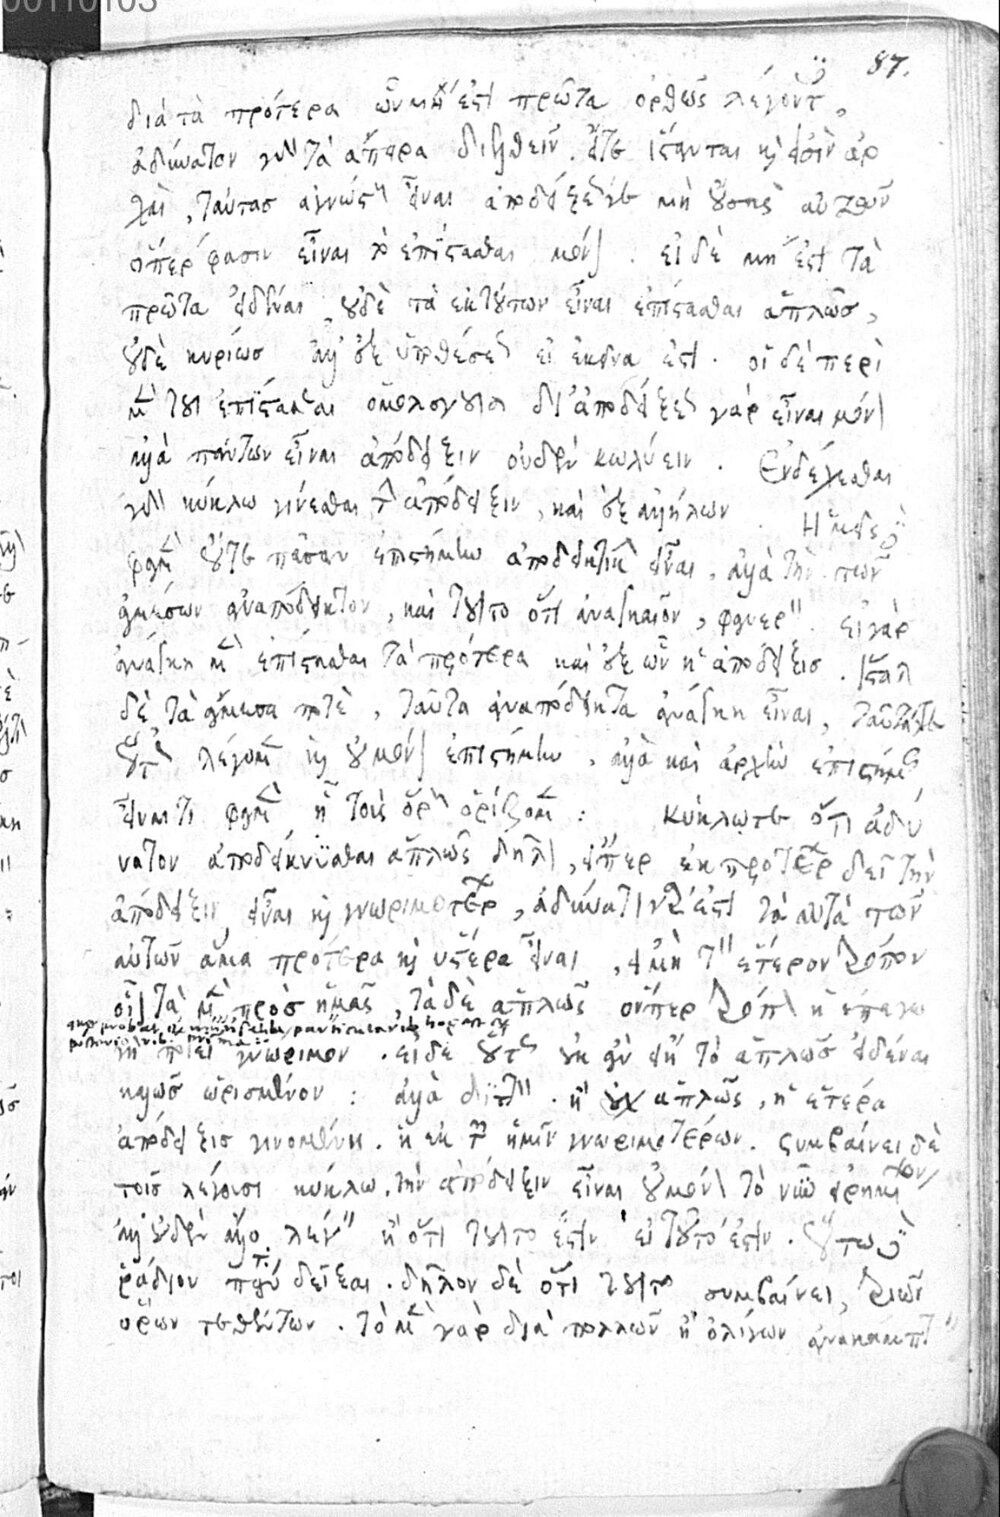 00110103
87.
διὰ τὰ πρότερα ὧν μή ἐστι πρῶτα ὀρθῶς λέγοντες,
ἀδύνατον γὰρ τὰ ἄπειρα διελθεῖν. εἴτε ἵστανται καὶ εἰσὶν ἀρ
χαὶ, ταύτας ἀγνώστους εἶναι ἀποδείξεώς γε μὴ οὔσης αὐτῶν
ὅπερ φασὶν εἶναι τὸ ἐπίστασθαι μόνον. εἰ δὲ μή ἐστι τὰ
πρῶτα εἰδέναι, οὐδὲ τὰ ἐκ τούτων εἶναι ἐπίστασθαι ἁπλῶς,
οὐδὲ κυρίως ἀλλ' ἐξ ὑποθέσεως εἰ ἐκεῖνα ἐστι. οἱ δὲ περὶ
μὲν τοῦ ἐπίστασθαι ὁμολογοῦσι δι' ἀποδείξεως γὰρ εἶναι μόνον
ἀλλὰ πάντων εἶναι ἀπόδειξιν οὐδὲν κωλύειν. Ἐνδέχεσθαι
γὰρ κύκλω γίνεσθαι τὴν ἀπόδειξιν, καὶ ἐξ ἀλλήλων. Ἡμεῖς δέ
φαμεν οὔτε πᾶσαν ἐπιστήμην ἀποδεικτικὴν εἶναι, ἀλλὰ τὴν τῶν
ἀμέσων ἀναπόδεικτον, καὶ τοῦτο ὅτι ἀναγκαῖον, φανερόν. εἰ γὰρ
ἀνάγκη μὲν ἐπίστασθαι τὰ πρότερα καὶ ἐξ ὧν ἡ ἀπόδειξις. ἵσταται
δὲ τὰ ἄμεσα ποτὲ, ταῦτα ἀναπόδεικτα ἀνάγκη εἶναι, ταῦτά τε
οὕτως λέγομεν καὶ οὐ μόνον ἐπιστήμην, ἀλλὰ καὶ ἀρχὴν ἐπιστήμης
εἶναί τι φαμὲν ᾗ τοὺς ὅρους ὁρίζομεν : κύκλω τε ὅτι ἀδύ
νατον ἀποδείκνυσθαι ἁπλῶς δῆλον, εἴπερ ἐκ προτέρων δεῖ τὴν
ἀπόδειξιν εἶναι καὶ γνωριμοτέρων, ἀδύνατον γάρ ἐστι τὰ αὐτὰ τῶν
αὐτῶν ἅμα πρότερα καὶ ὕστερα εἶναι, εἰ μὴ τὸν ἕτερον τρόπον
οἷον τὰ μὲν πρὸς ἡμᾶς, τὰ δὲ ἁπλῶς ὅνπερ τρόπον ἡ ἐπαγω
γὴ ποιεῖ γνώριμον. εἰ δὲ οὕτως οὐκ ἂν εἴη τὸ ἁπλῶς εἰδέναι
καλῶς ὡρισμένον : ἀλλὰ διττόν. ἢ οὐχ ἁπλῶς, ἡ ἑτέρα
ἀπόδειξις γινομένη. ἡ ἐκ τῶν ἡμῖν γνωριμοτέρων. συμβαίνει δὲ
τοῖς λέγουσι κύκλω, τὴν ἀπόδειξιν εἶναι οὐ μόνον τὸ νῦν εἰρημένον,
ἀλλ' οὐδὲν ἄλλο λέγειν ἢ ὅτι τοῦτό ἐστιν εἰ τοῦτό ἐστιν. οὕτω δὲ
ῥάδιον πάντα δεῖξαι. δῆλον δὲ ὅτι τοῦτο συμβαίνει, τριῶν
ὅρων τεθέντων. τὸ μὲν γὰρ διὰ πολλῶν ἢ ὀλίγων ἀνακάμπτειν